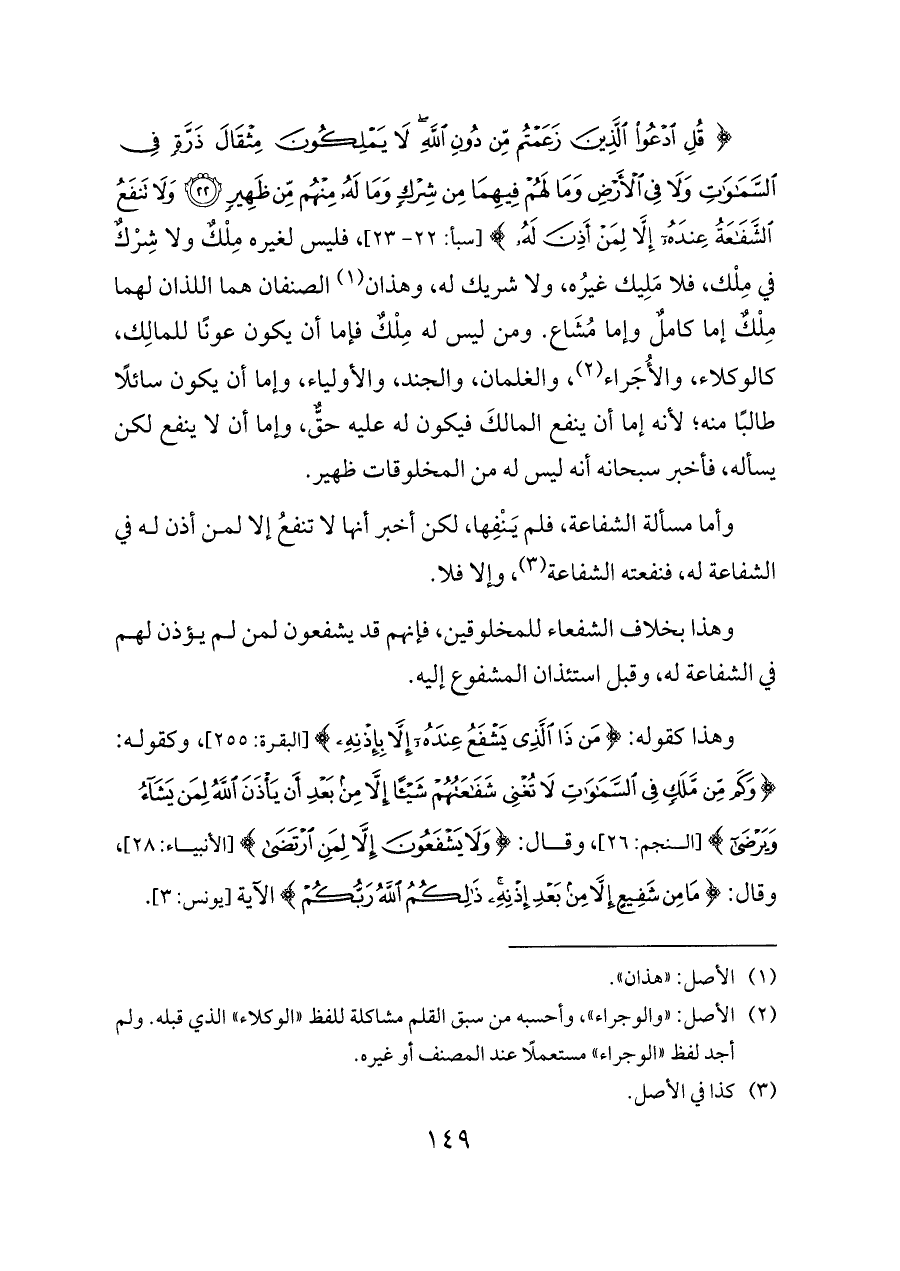 ﴿ قُلِ ٱدْعُوا۟ ٱلَّذِينَ زَعَمْتُم مِّن دُونِ ٱللَّهِ ۖ لَا يَمْلِكُونَ مِثْقَالَ ذَرَّةٍ فِى
ٱلسَّمَٰوَٰتِ وَلَا فِى ٱلْأَرْضِ وَمَا لَهُمْ فِيهِمَا مِن شِرْكٍ وَمَا لَهُۥ مِنْهُم مِّن ظَهِيرٍ ﴿٢٢﴾ وَلَا تَنفَعُ
ٱلشَّفَٰعَةُ عِندَهُۥٓ إِلَّا لِمَنْ أَذِنَ لَهُۥ ﴾ [سبأ: ٢٢- ٢٣]، فليس لغيره مِلْكٌ ولا شِرْكٌ
في مِلْك، فلا مَلِيك غيرُه، ولا شريك له، وهذان(١) الصنفان هما اللذان لهما
مِلْكٌ إما كاملٌ وإما مُشَاع. ومن ليس له مِلْكٌ فإما أن يكون عونًا للمالِك،
كالوكلاء، والأُجَراء(٢)، والغلمان، والجند، والأولياء، وإما أن يكون سائلًا
طالبًا منه؛ لأنه إما أن ينفع المالكَ فيكون له عليه حقٌّ، وإما أن لا ينفع لكن
يسأله، فأخبر سبحانه أنه ليس له من المخلوقات ظهير.
وأما مسألة الشفاعة، فلم يَنْفِها، لكن أخبر أنها لا تنفعُ إلا لمن أذن له في
الشفاعة له، فنفعته الشفاعة(٣)، وإلا فلا.
وهذا بخلاف الشفعاء للمخلوقين، فإنهم قد يشفعون لمن لم يؤذن لهم
في الشفاعة له، وقبل استئذان المشفوع إليه.
وهذا كقوله: ﴿ مَن ذَا ٱلَّذِى يَشْفَعُ عِندَهُۥٓ إِلَّا بِإِذْنِهِۦ ﴾ [البقرة: ٢٥٥]، وكقوله:
﴿ وَكَم مِّن مَّلَكٍ فِى ٱلسَّمَٰوَٰتِ لَا تُغْنِى شَفَٰعَتُهُمْ شَيْـًٔا إِلَّا مِنۢ بَعْدِ أَن يَأْذَنَ ٱللَّهُ لِمَن يَشَآءُ
وَيَرْضَىٰٓ ﴾ [النجم: ٢٦]، وقال: ﴿ وَلَا يَشْفَعُونَ إِلَّا لِمَنِ ٱرْتَضَىٰ ﴾ [الأنبياء: ٢٨]،
وقال: ﴿ مَا مِن شَفِيعٍ إِلَّا مِنۢ بَعْدِ إِذْنِهِۦ ۚ ذَٰلِكُمُ ٱللَّهُ رَبُّكُمْ ﴾ الآية [يونس: ٣].
(١) الأصل: «هذان».
(٢) الأصل: «والوجراء»، وأحسبه من سبق القلم مشاكلة للفظ «الوكلاء» الذي قبله. ولم
أجد لفظ «الوجراء» مستعملًا عند المصنف أو غيره.
(٣) كذا في الأصل.
١٤٩